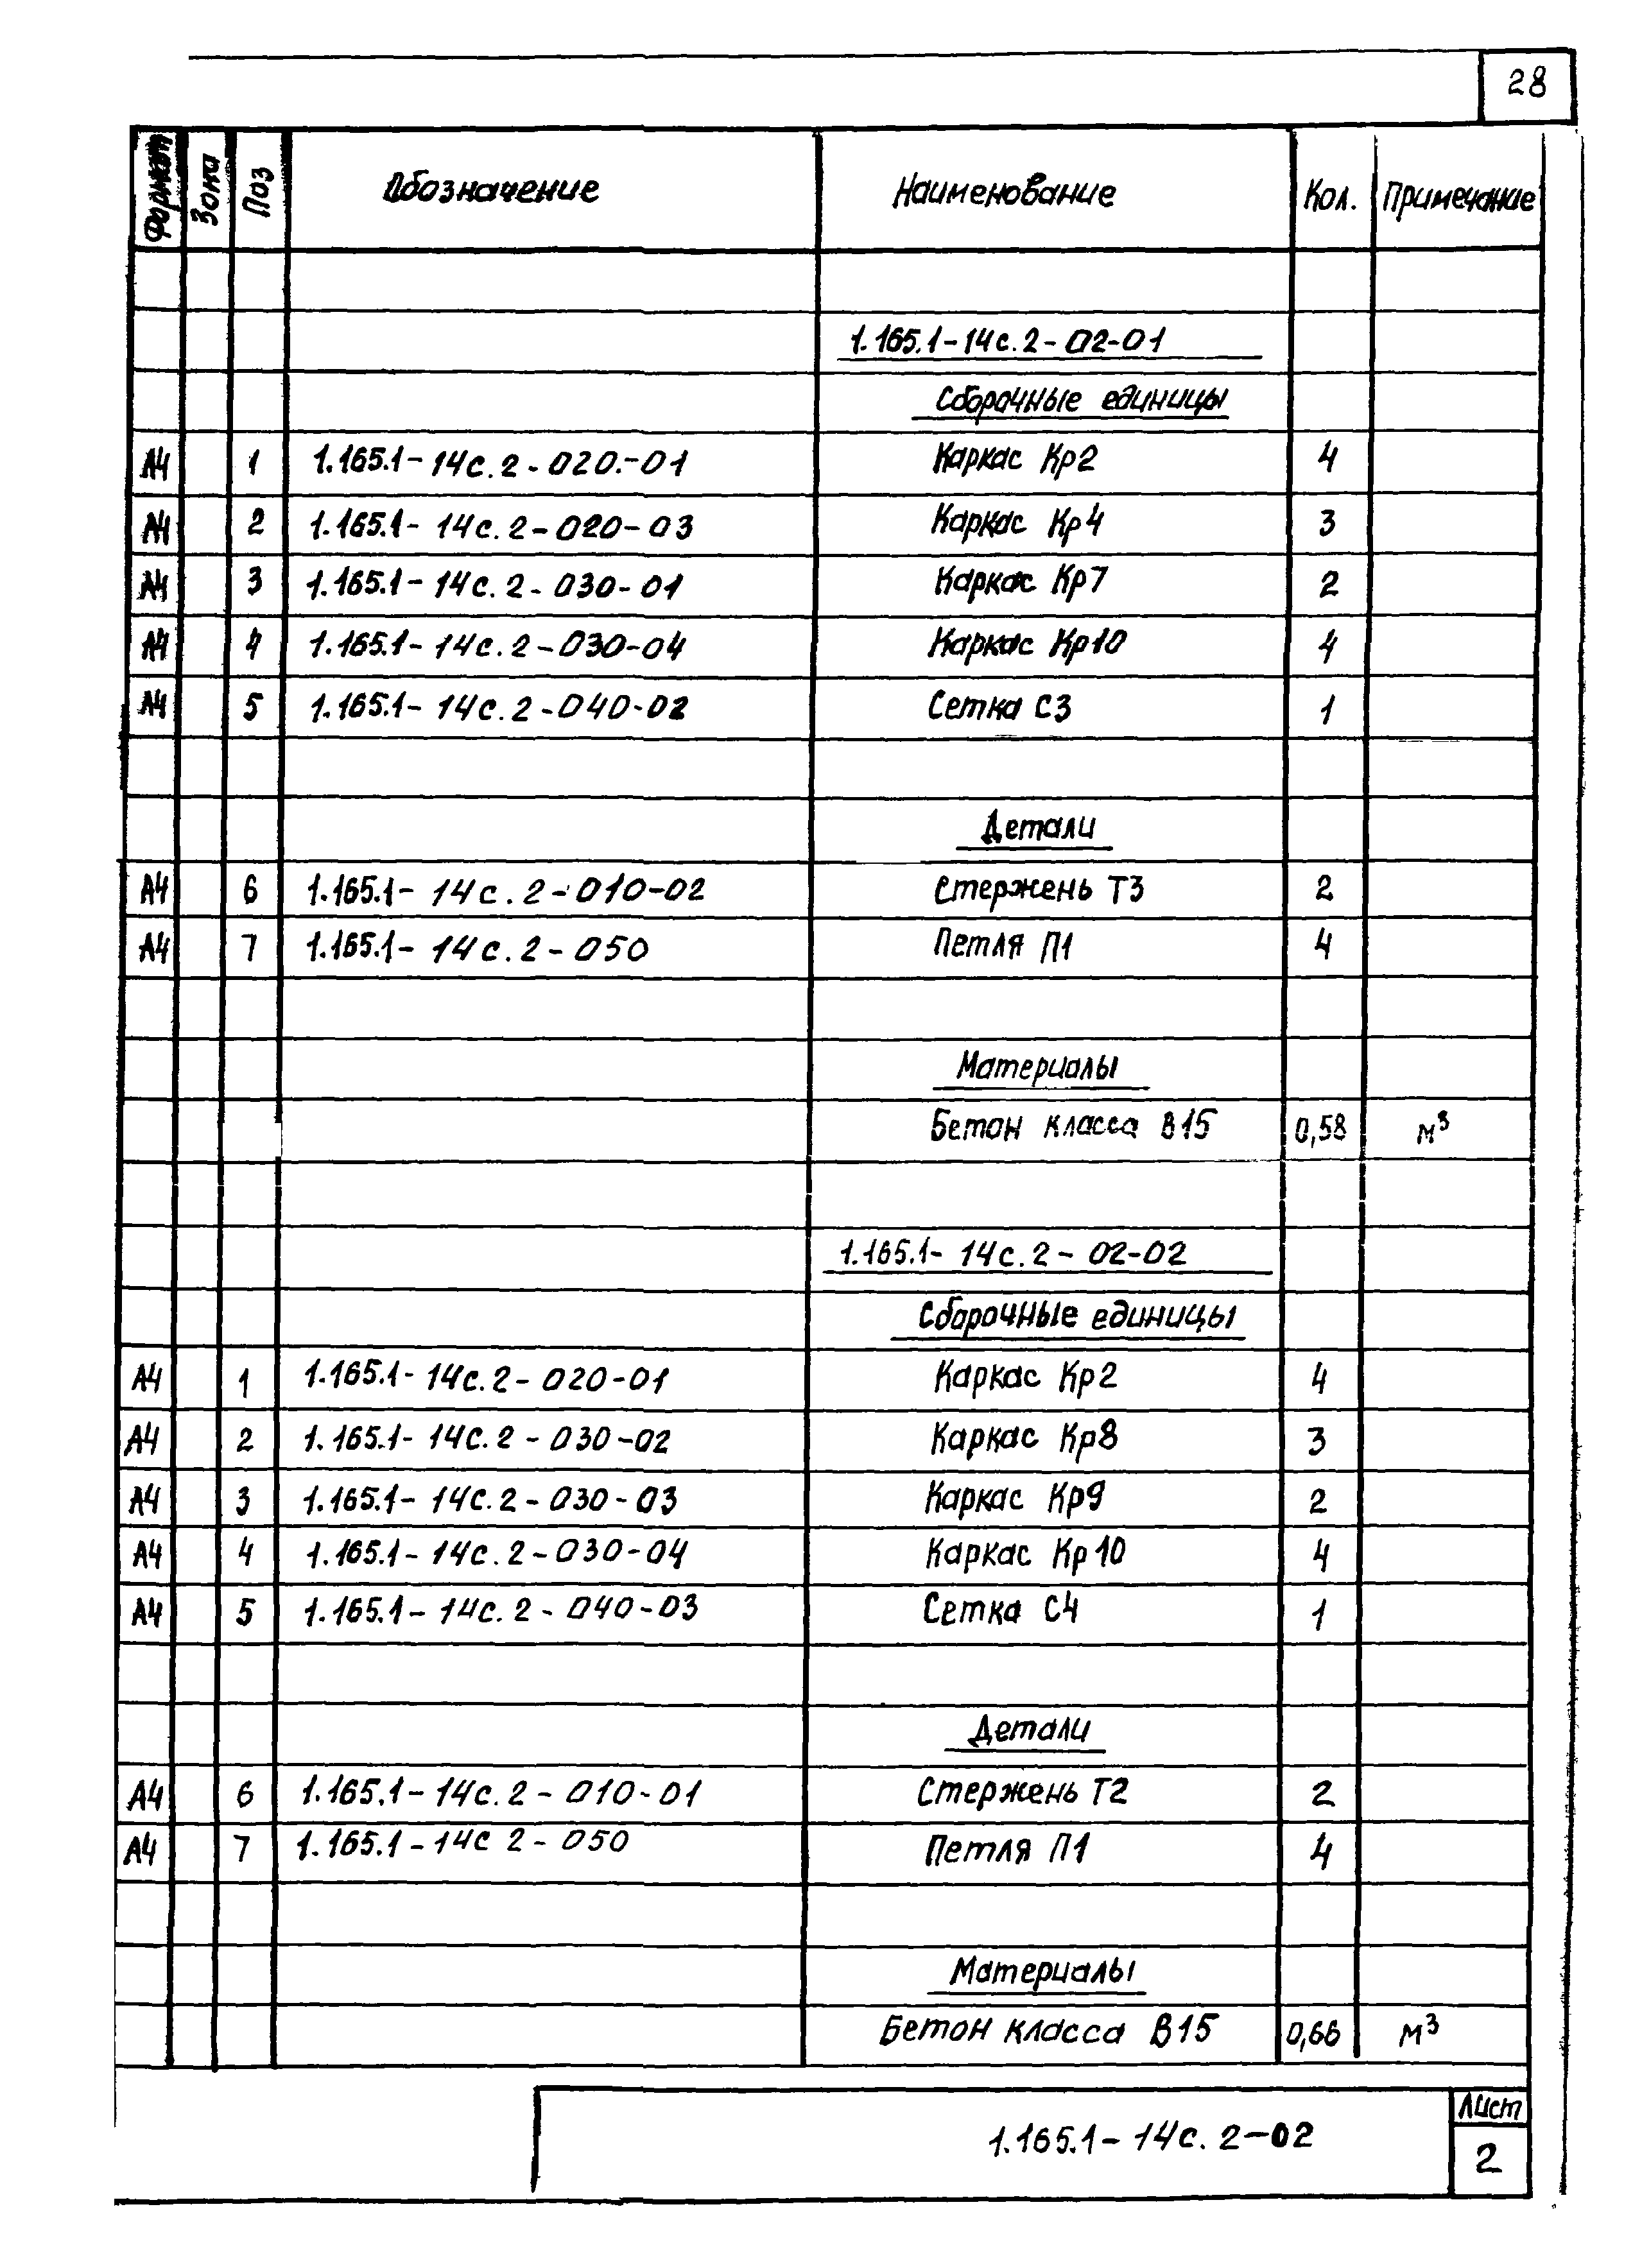 28
Формат Зона Поз Обозначение Наименование Кол. Примечание
1.165.1-14с.2-02-01
Сборочные единицы
А4 1 1.165.1-14с.2-020.-01 Каркас Кр2 4
А4 2 1.165.1-14с.2-020-03 Каркас Кр4 3
А4 3 1.165.1-14с.2-030-01 Каркас Кр7 2
А4 4 1.165.1-14с.2-030-04 Каркас Кр10 4
А4 5 1.165.1-14с.2-040-02 Сетка С3 1
Детали
А4 6 1.165.1-14с.2-010-02 Стержень Т3 2
А4 7 1.165.1-14с.2-050 Петля П1 4
Материалы
Бетон класса В15 0,58 м³
1.165.1-14с.2-02-02
Сборочные единицы
А4 1 1.165.1-14с.2-020-01 Каркас Кр2 4
А4 2 1.165.1-14с.2-030-02 Каркас Кр8 3
А4 3 1.165.1-14с.2-030-03 Каркас Кр9 2
А4 4 1.165.1-14с.2-030-04 Каркас Кр10 4
А4 5 1.165.1-14с.2-040-03 Сетка С4 1
Детали
А4 6 1.165.1-14с.2-010-01 Стержень Т2 2
А4 7 1.165.1-14с 2-050 Петля П1 4
Материалы
Бетон класса В15 0,66 м³
1.165.1-14с.2-02
Лист
2